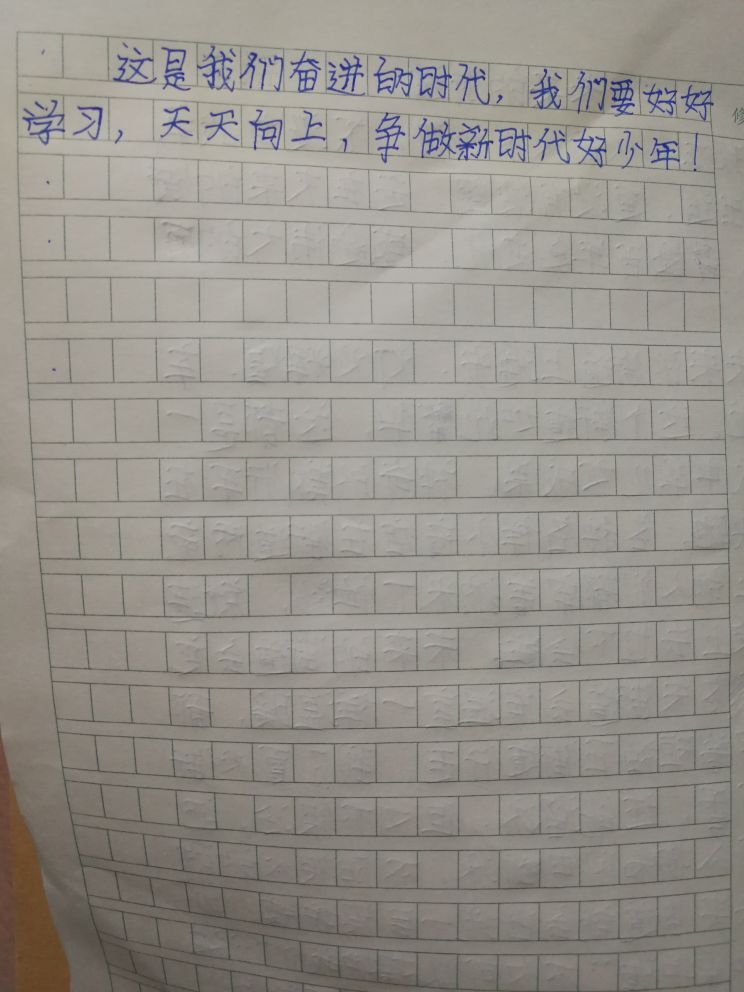 这是我们奋进的时代，我们要好好
学习，天天向上，争做新时代好少年！